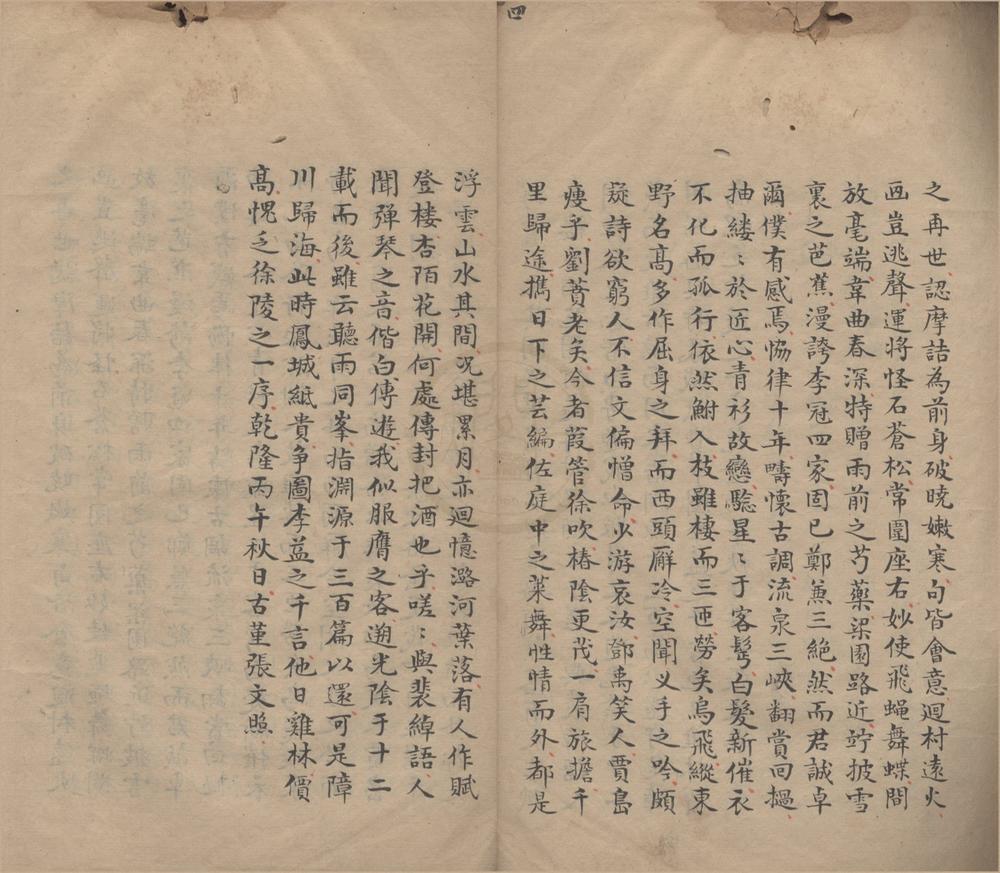 四
之再世認摩詰為前身破曉嫩寒句皆會意迴村遠火
画豈逃聲運將怪石蒼松常圍座右妙使飛蝇舞蝶閙
放毫端韋曲春深特贈雨前之芍藥梁園路近竚披雪
裏之芭蕉漫誇李冠四家固已鄭蕪三絶然而君誠卓
爾僕有感焉恊律十年疇懷古調流泉三峽翻賞回撾
抽縷〻於匠心青衫故戀騐星〻于客髩白髮新催衣
不化而孤行依然鮒入枝雖棲而三匝勞矣烏飛縱東
野名高多作屈身之拜而西頭廨冷空聞乂手之吟頗
疑詩欲窮人不信文偏憎命少游哀汝鄧禹笑人賈島
瘦乎劉蕡老矣今者葭管徐吹椿陰更茂一肩旅擔千
里歸途携日下之芸編佐庭中之萊舞性情而外都是
浮雲山水其間况堪累月亦迴憶潞河葉落有人作賦
登楼杏陌花開何處傳封把酒也乎嗟〻與裴綽語人
聞弹琴之音偕白傳遊我似服膺之客遡光陰于十二
載而後雖云聽雨同峯指淵源于三百篇以還可是障
川歸海此時鳳城紙貴争圖李益之千言他日雞林價
高愧乏徐陵之一序乾隆丙午秋日古堇張文照